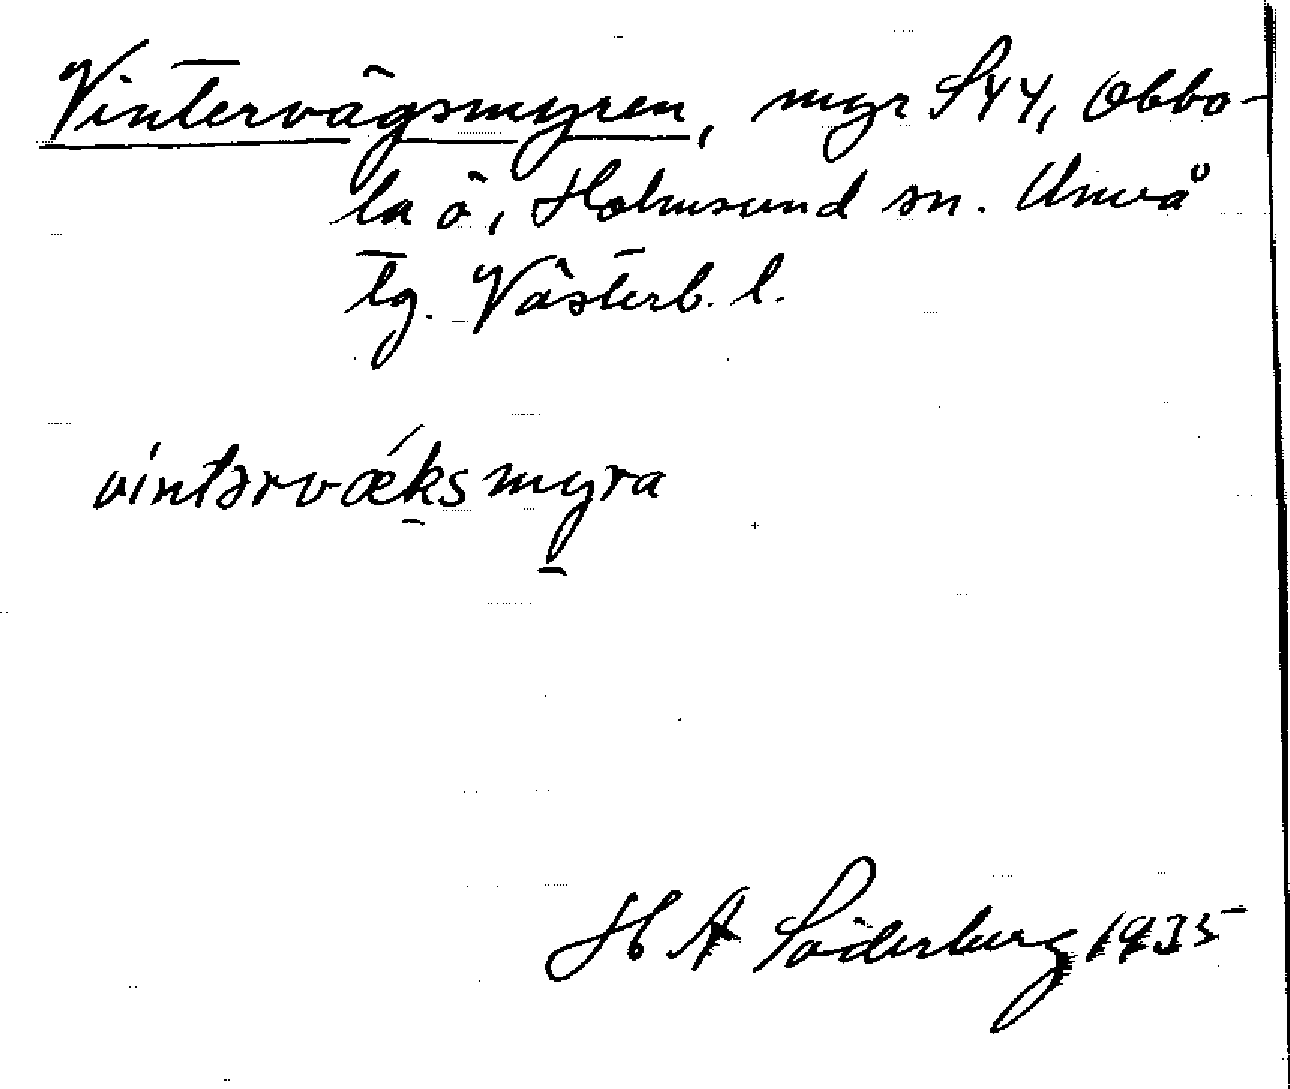 Vintervägsmyren, myr S44, Obbo-
la ö, Holmsund sn. Umeå
tg. Västerb. l.
víntərvǽksmyra
H A Söderberg 1935